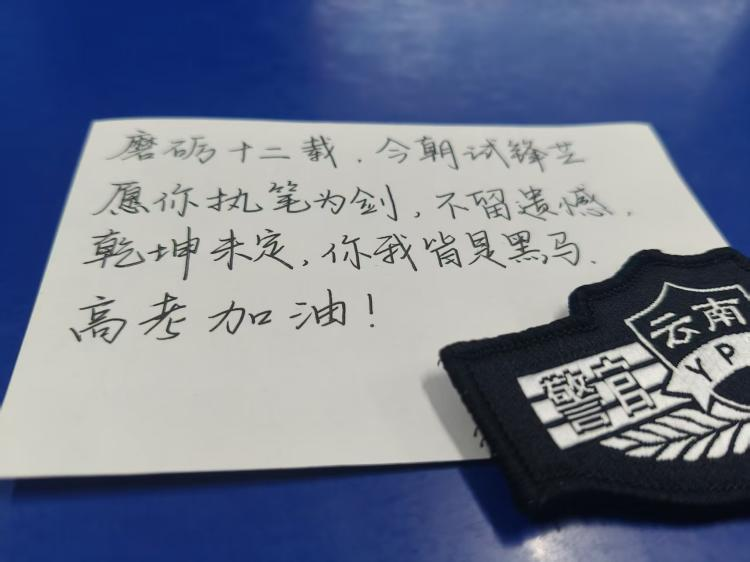 磨砺十二载，今朝试锋芒
愿你执笔为剑，不留遗憾，
乾坤未定，你我皆是黑马.
高考加油！
云南
YP
警官